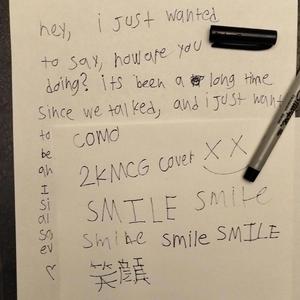 hey, i just wanted
to say, how are you
doing? its been a long time
since we talked, and i just want
to
be
ah
I
si
al
so
ev
COMO
2KMCG cover XX
SMILE smile
smile smile SMILE
笑顔